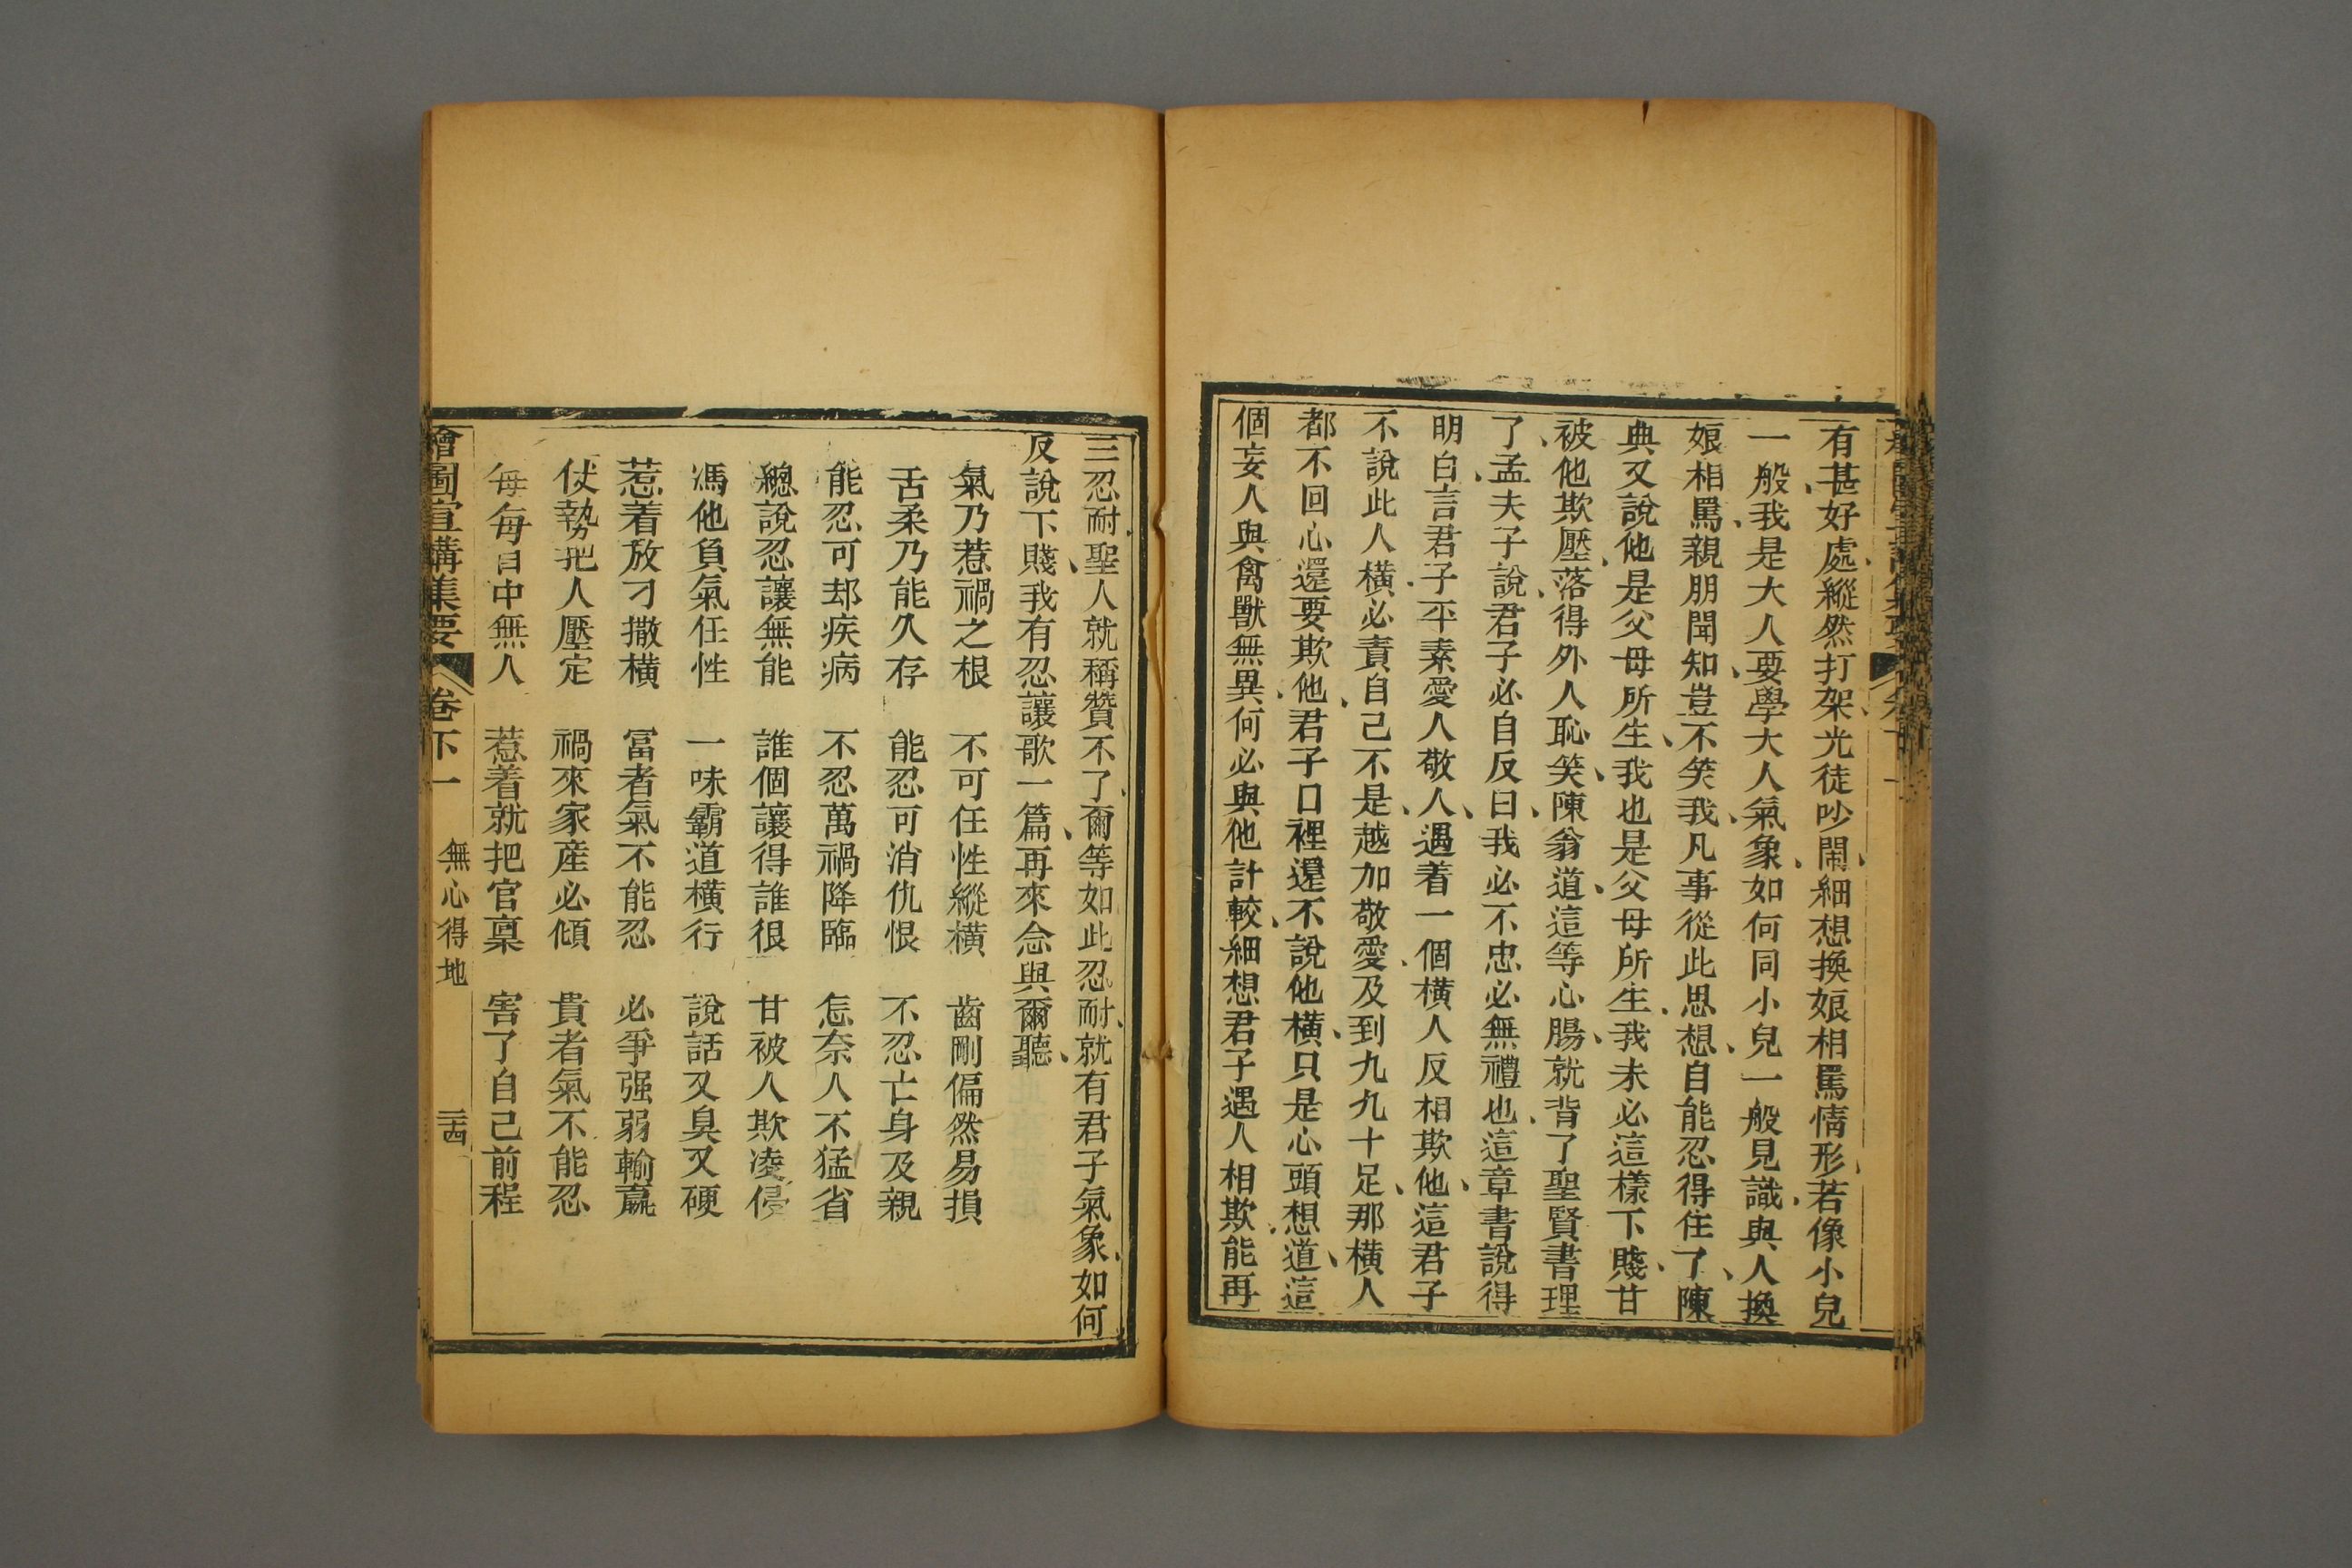 有甚好處縱然打架光徒吵鬧細想換娘相罵情形若像小兒
一般我是大人要學大人氣象如何同小兒一般見識與人換
娘相罵親朋聞知豈不笑我凡事從此思想自能忍得住了陳
典又說他是父母所生我也是父母所生我未必這樣下賤甘
被他欺壓落得外人恥笑陳翁道這等心腸就背了聖賢書理
了孟夫子說君子必自反曰我必不忠必無禮也這章書說得
明白言君子平素愛人敬人遇着一個橫人反相欺他這君子
不說此人橫必責自己不是越加敬愛及到九九十足那橫人
都不回心還要欺他君子口裡還不說他橫只是心頭想道這
個妄人與禽獸無異何必與他計較細想君子遇人相欺能再
三忍耐聖人就稱贊不了爾等如此忍耐就有君子氣象如何
反說下賤我有忍讓歌一篇再來念與爾聽
氣乃惹禍之根 不可任性縱橫 齒剛偏然易損
舌柔乃能久存 能忍可消仇恨 不忍亡身及親
能忍可却疾病 不忍萬禍降臨 怎奈人不猛省
總說忍讓無能 誰個讓得誰很 甘被人欺凌侵
馮他負氣任性 一味霸道橫行 說話又臭又硬
惹着放刁撒橫 富者氣不能忍 必爭强弱輸贏
仗勢把人壓定 禍來家產必傾 貴者氣不能忍
每每目中無人 惹着就把官稟 害了自己前程
繪圖宣講集要 卷下一 無心得地 三十四